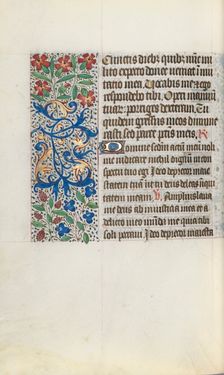 Cunctis diebus quibus nunc mi
lito expecto donec veniat immuta
tio mea Vocabis me et ego
respondebo tibi Operi manuum
tuarum porriges dexteram Tu
quidem gressus meos dinume
rasti sed parce pctis meis
Domine secundum actum meum noli
me iudicare nichil dignum in con
spectu tuo egi Ideo deprecor maies
tatem tuam ut tu deus deleas iniqui
tatem meam Amplius lava
me deus ab iniusticia mea et a
delicto meo munda me quia tibi
soli peccavi Ideo deprecor maiesta